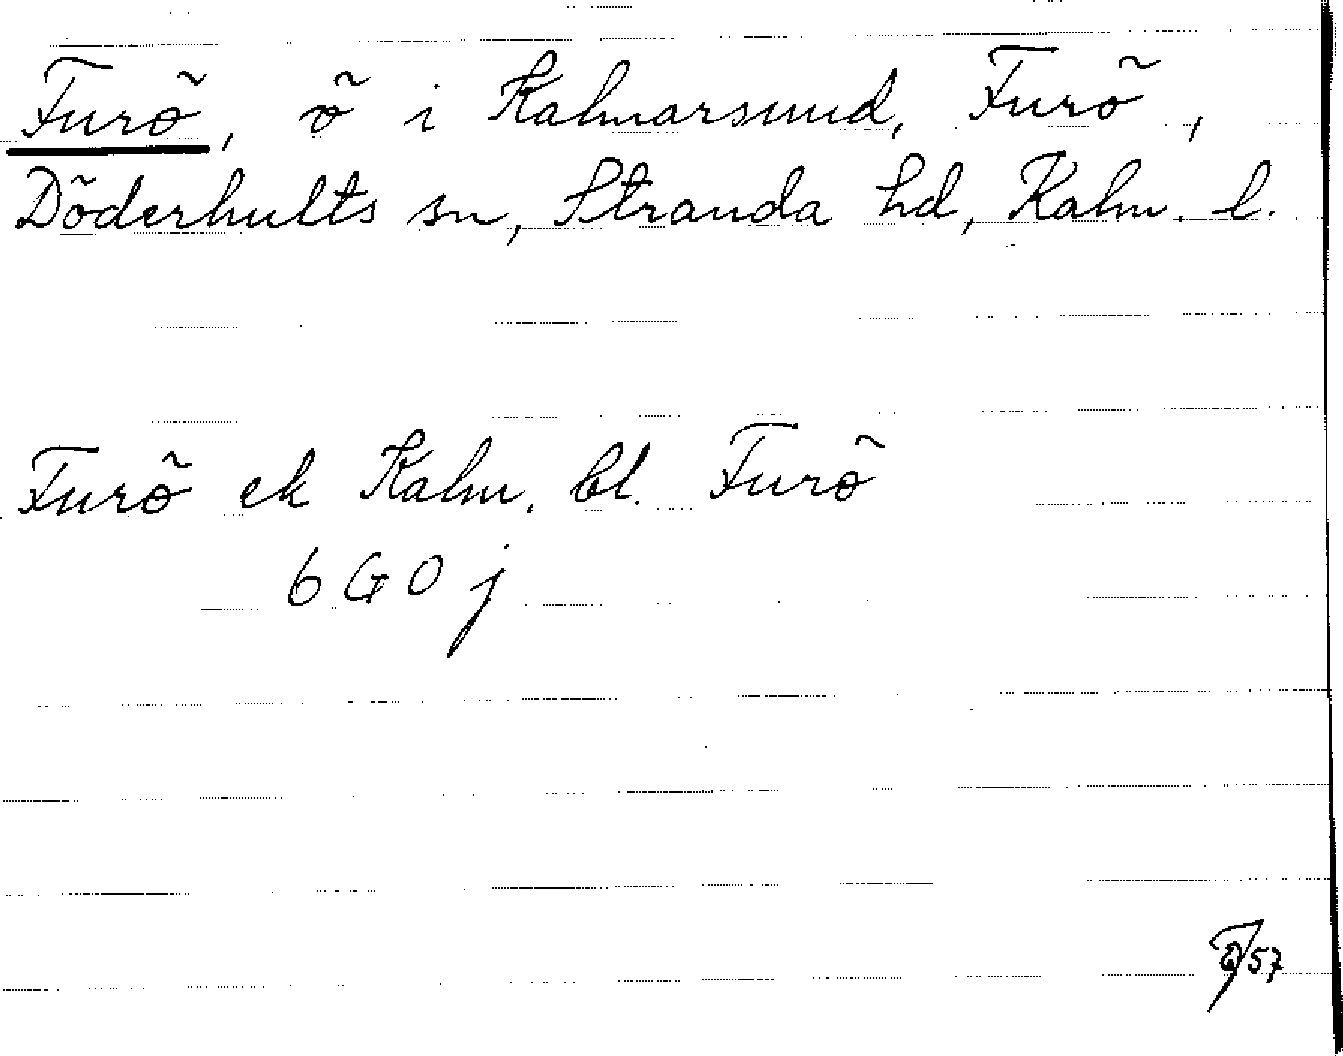 Furö, ö i Kalmarsund, Furö,
Döderhults sn, Stranda hd, Kalm. l.
Furö ek Kalm. bl. Furö
6 G 0 j
57